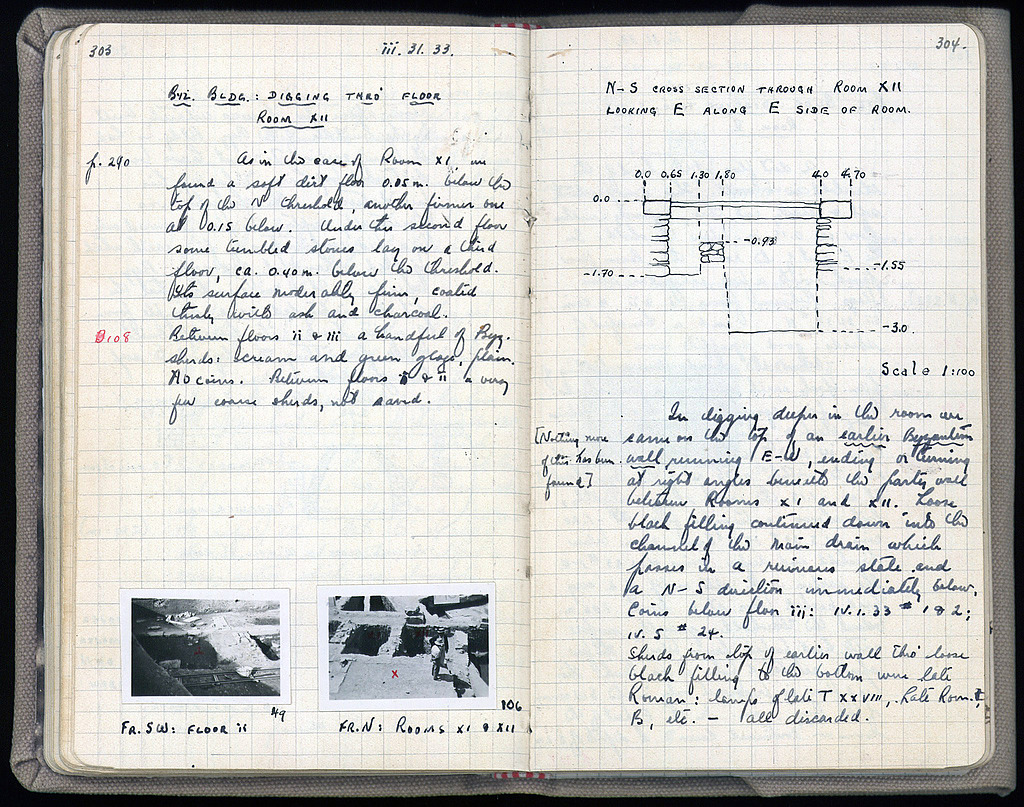 303
iii. 31. 33.
Byz. Bldg.: Digging thro' floor
Room XII
p. 290
As in the case of Room XI, we
found a soft dirt floor 0.05 m. below the
top of the N threshold, another firmer one
at 0.15 below. Under this second floor
some tumbled stones lay on a third
floor, ca. 0.40 m. below the threshold.
Its surface moderably firm, coated
thinly with ash and charcoal.
B108
Between floors ii & iii a handful of Byz.
sherds: scream and green glaze, plain.
No coins. Between floors & ii a very
few coarse sherds, not saved.
49
Fr. SW: Floor ii
X
106
Fr. N: Rooms XI & XII
304.
N-S cross section through Room XII
looking E along E side of room.
0.0 0.65 1.30 1.80 4.0 4.70
0.0
-0.93
-1.70
-1.55
-3.0
Scale 1:100
In digging deeper in the room we
came on the top of an earlier Byzantine
[Nothing more
of this has been
found]
wall running E-W, ending or turning
at right angles beneath the party wall
between Rooms XI and XII. Loose
black filling continued down into the
channel of the main drain which
passes in a ruinous state and
a N-S direction immediately below.
Coins below floor iii: IV.1.33 # 1 & 2;
IV. 5 # 24.
Sherds from top of earlier wall thro' loose
black filling to the bottom were late
Roman: lamps of late T XXVIII, Late Rom.
B, etc. - all discarded.